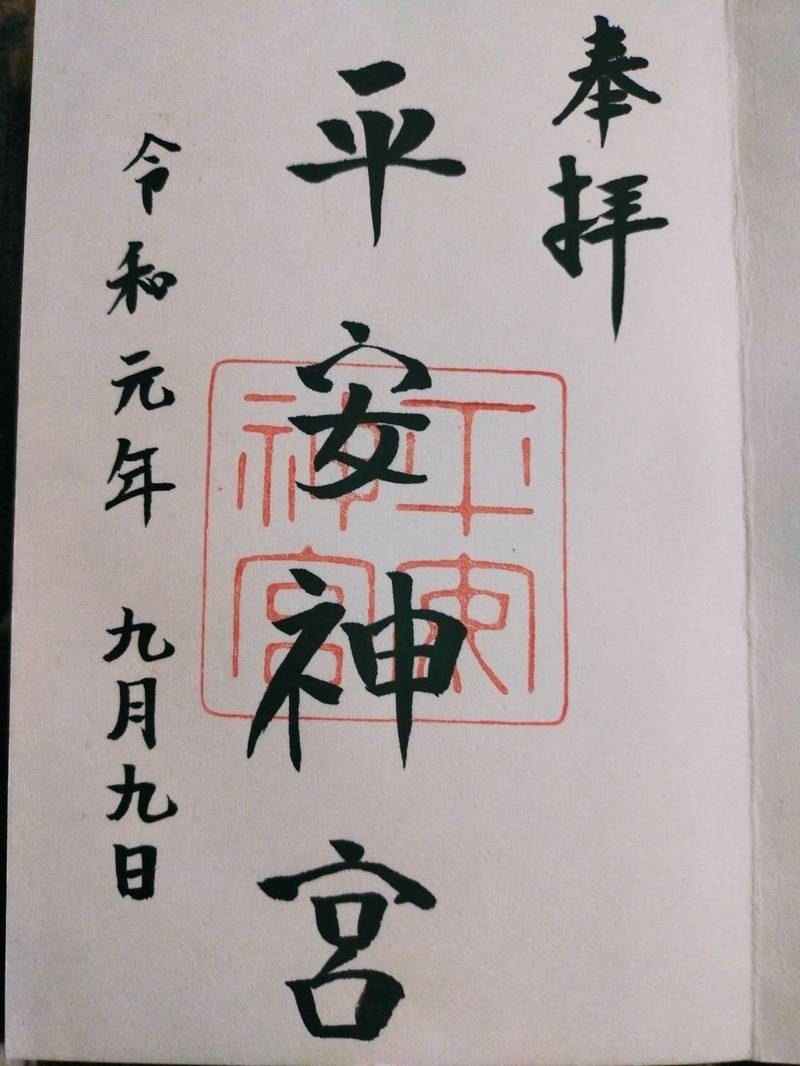 奉拝
平安神宮
令和元年 九月九日
平安神宮